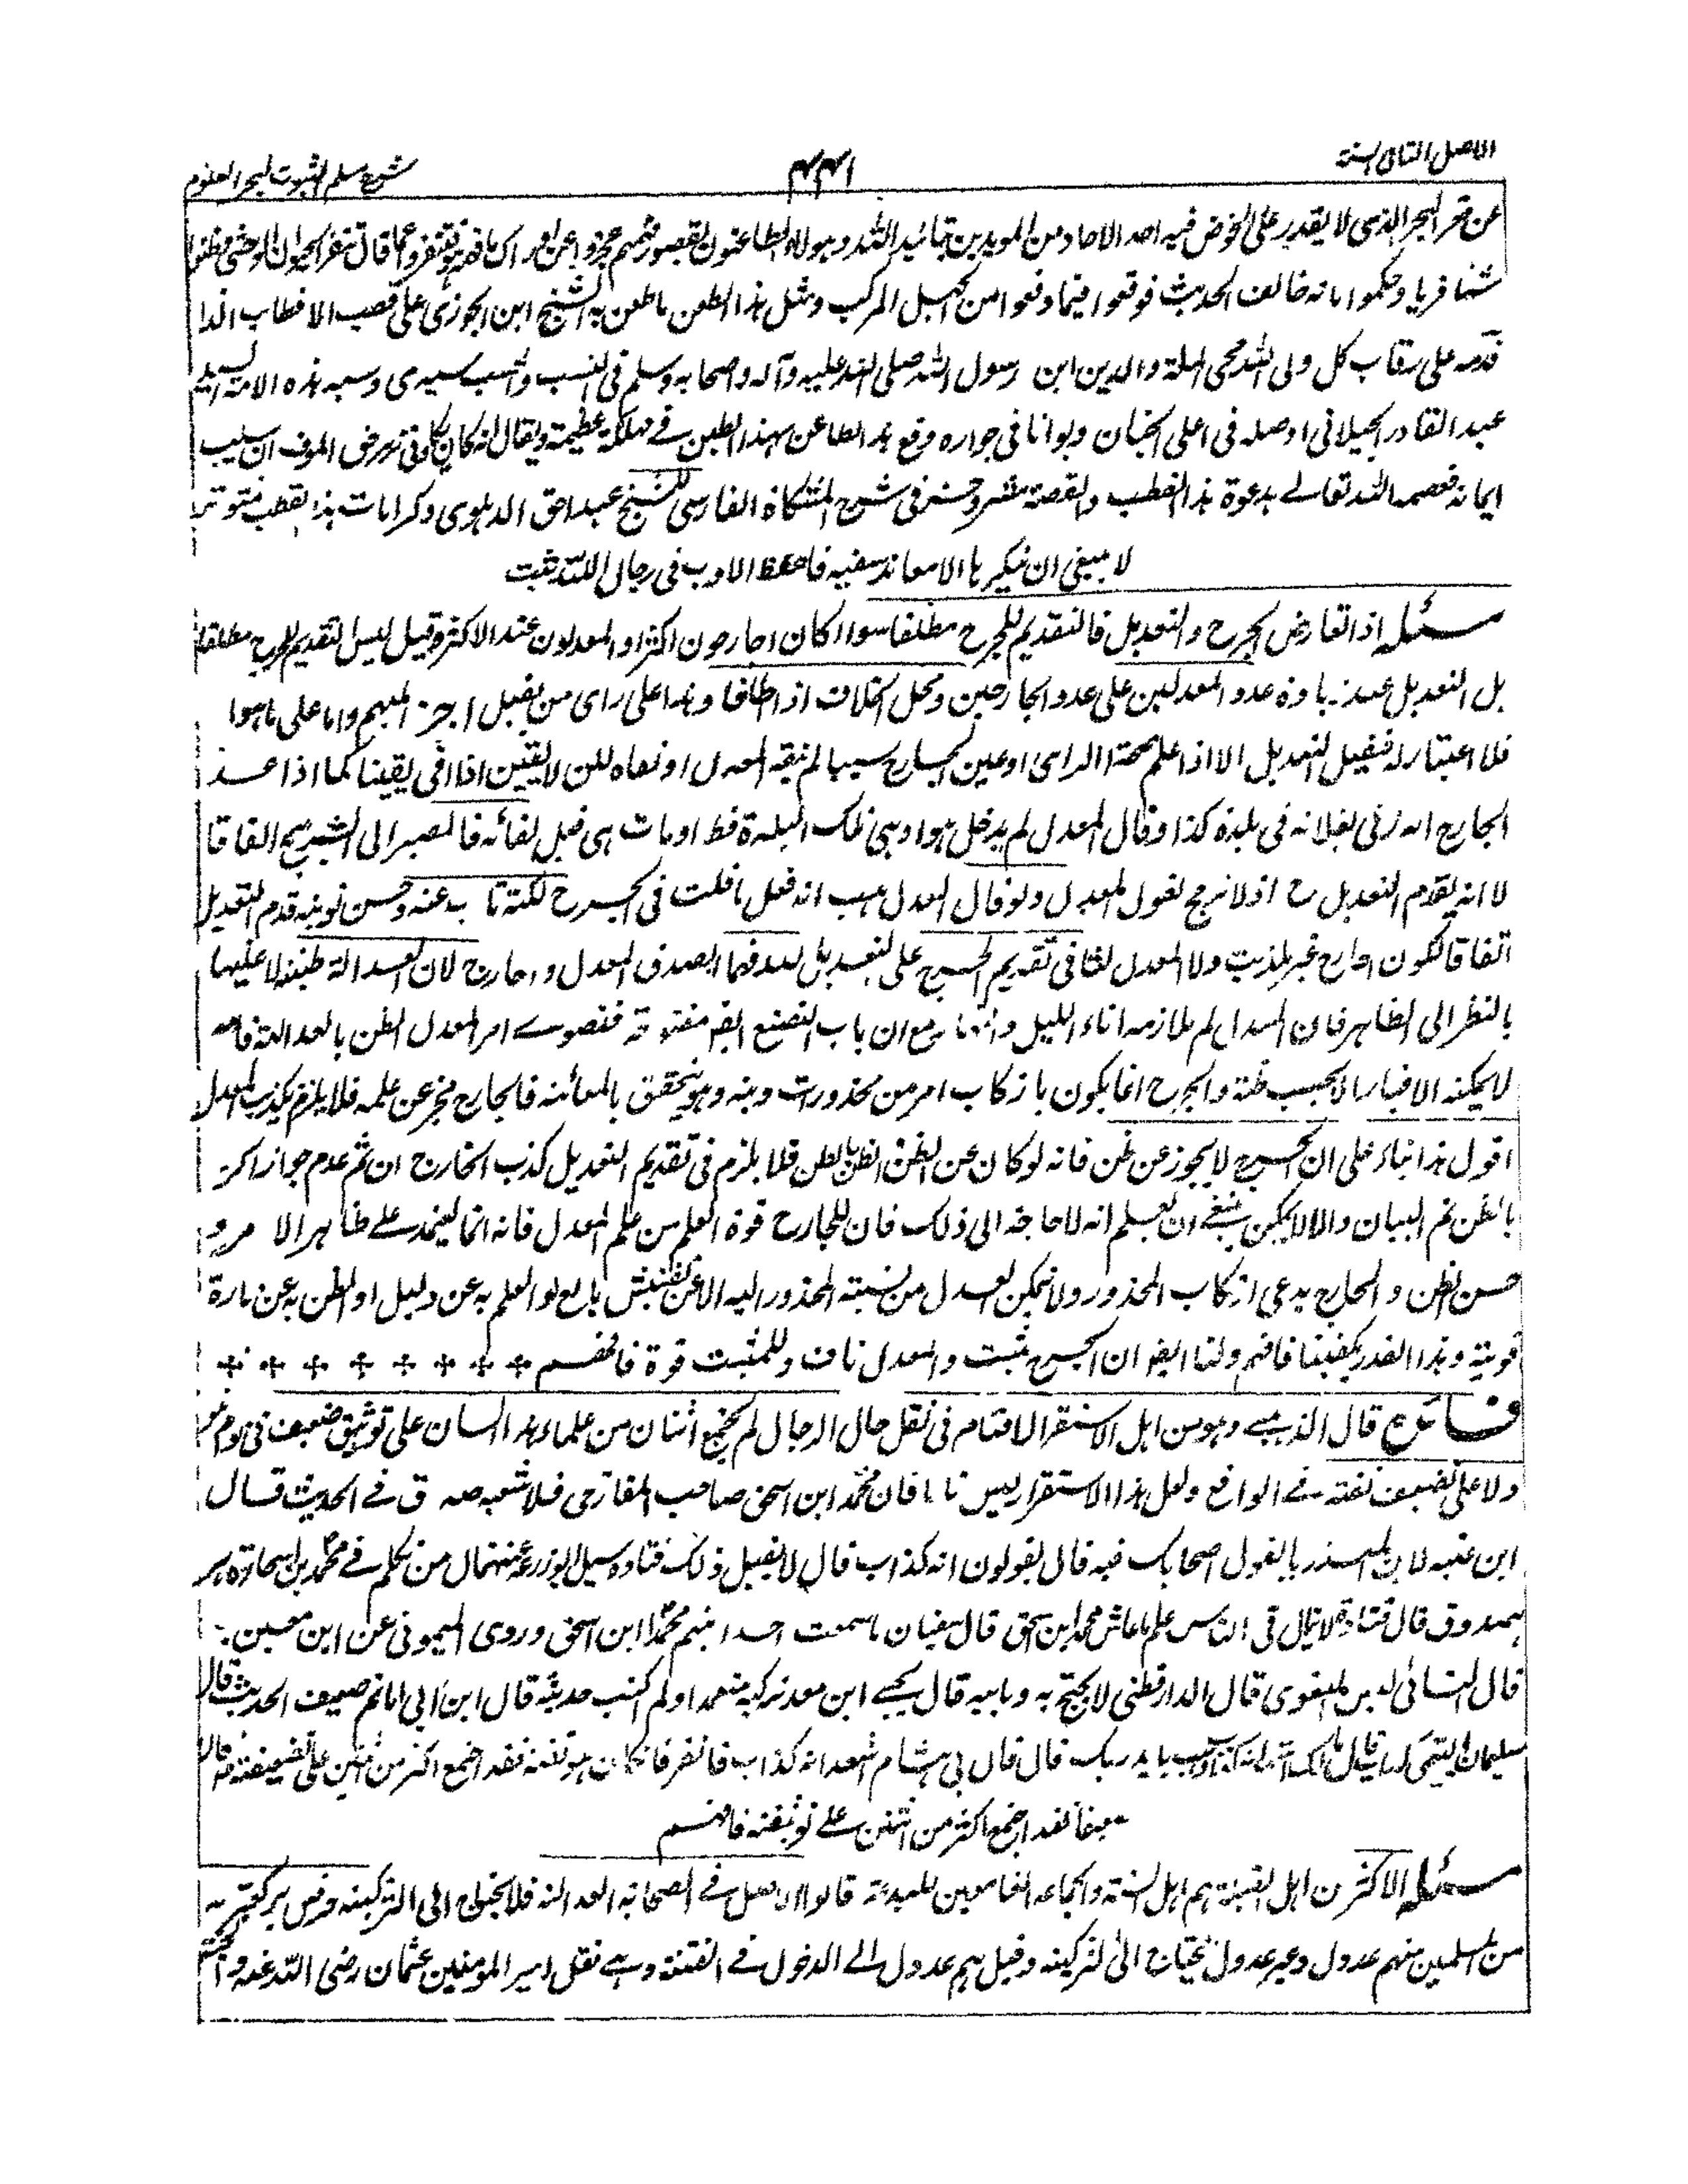 الاصل الثانى السنة
۴۴۱
شرح مسلم الثبوت لبحر العلوم
عن قعر البحر الذى لا يقدر على الخوض فيه احد الاحاد من المويدين بتائيد الله وهولاء الطاعنون لقصور فهمهم عجزوا عن ادراك ما فيه فتنفروا عما قال تنفر الحيوان الوحشى
شيئا فريا وحكموا بانه خالف الحديث فوقعوا فيما وقعوا من الجهل المركب ومثل هذا الطعن ما طعن به الشيخ ابن الجوزى على قطب الاقطاب الذى
قدمه على رقاب كل ولى الله محى الملة والدين ابن رسول الله صلى الله عليه وآله واصحابه وسلم فى النسب والحسب سيدى وسيد هذه الامة السيد
عبد القادر الجيلانى اوصله فى اعلى الجنان وبوانا فى جواره وقع هذا الطاعن بهذا الطعن فے مهلكة عظيمة ويقال انه كان فى مرض الموت ان يسلب
ايمانه فعصمه الله تعالے بدعوة هذا القطب والقصة مشروحة فى شرح المشكاة الفارسى للشيخ عبد الحق الدهلوى وكرامات هذا القطب متوترة
لا ينبغى ان ينكرها الا معاند سفيه فاحفظ الادب فى رجال الله تثبت
مسئلة اذا تعارض الجرح والتعديل فالتقديم للجرح مطلقا سواء كان الجارحون اكثر او المعدلون عند الاكثر وقيل ليس التقديم للجرح مطلقا
بل التعديل عند زيادة عدد المعدلين على عدد الجارحين ومحل الخلاف اذا اطلقا وهذا على راى من يقبل الجرح المبهم واما على ما هو
فلا اعتبار له فيقبل التعديل الا اذا علم صحة الراى او عين الجارح سببا لم ينفه المعدل او نفاه لكن لا بيقين اما اذا نفى يقينا كما اذا
الجارح انه زنى بفلانة فى بلدة كذا وقال المعدل لم يدخل هو او هى تلك البلدة قط او ماتت هى قبل لقائه فالمصير الى الترجيح اتفاقا
لا انه يقدم التعديل ح اذ لا ترجيح لقول المعدل ولو قال المعدل هب انه فعل ما قلت فى الجرح لكنه تاب عنه وحسن توبته قدم التعديل
اتفاقا لكون الجارح غير مكذب ولا المعدل لنا فى تقديم الجرح على التعديل الصدق المعدل والجارح لان العدالة ظنية لا علمية
بالنظر الى الظاهر فان المعدل لم يلازمه اناء الليل والنهار مع ان باب التصنع ايضا مفتوحة فقصوے امر المعدل الظن بالعدالة فانه
لا يمكنه الاخبار الا بحسب ظنه والجرح انما يكون بارتكاب امر من محذورات دينه وهو يتحقق بالمعائنة فالجارح مخبر عن علمه فلا يلزم تكذيب المعدل
اقول هذا بناء على ان الجرح لا يجوز عن ظن فانه لو كان عن الظن فالظن بالظن فلا يلزم فى تقديم التعديل كذب الجارح ان تم عدم جواز الجرح
بالظن تم البيان والا لا لكن ينبغے ان يعلم انه لا حاجة الى ذلك فان للجارح قوة العلم من علم المعدل فانه انما يعتمد على ظاهر الامر و
حسن الظن والجارح يدعى ارتكاب المحذور ولا يمكن لعدل من نسبة المحذور اليه الا عن تفتيش بالغ لو العلم به عن دليل او الظن به عن امارة
قوية وهذا القدر يكفينا فافهم ولنا ايضا ان الجرح مثبت والمعدل ناف وللمثبت قوة فافهم
فائدة قال الذهبے وهو من اهل الاستقراء التام فى نقل حال الرجال لم يجتمع اثنان من علماء هذا الشان على توثيق ضعيف فى
ولا على تضعيف ثقة فے الواقع ولعل هذا الاستقراء ليس تاما فان محمد ابن اسحق صاحب المغازى قال شعبه صدوق فے الحديث قال
ابن عيينه لابن المنذر ما يقول اصحابك فيه قال يقولون انه كذاب قال لا تقبل ذلك سئل ابو زرعة عنه قال من تكلم فے محمد بن اسحاق هو
صدوق قال قتادة لا يزال فى الناس علم ما عاش محمد ابن اسحق قال سفيان ما سمعت احدا يتهم محمد ابن اسحق وروى الميمونى عن ابن معين
قال النسائى ليس بالقوى قال الدارقطنى لا يحتج به وبابيه قال يحيے ابن سعد تركته متعمدا ولم اكتب حديثه قال ابن ابى حاتم ضعيف الحديث قال
سليمان التيمى كذاب قال مالك اشهد انه كذاب ما يدريك قال قال لى هشام اشهد انه كذاب فانظر فان كان هو ثقة فقد اجتمع اكثر من اثنين على تضعيفه وان كان
ضعيفا فقد اجتمع اكثر من اثنين علے توثيقه فافهم
مسئلة الاكثر من اهل القبلة هم اهل السنة والجماعة القامعين للبدعة قالوا الاصل فے الصحابة العدالة فلا يحتاج الى التزكية وقيل هم كغيرهم
من المسلمين منهم عدول وغير عدول يحتاج الى التزكية وقيل هم عدول الے الدخول فے الفتنة وهے قتل امير المومنين عثمان رضى الله عنه و